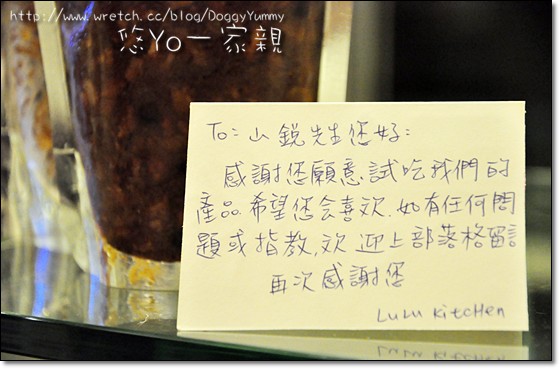 http://www.wretch.cc/blog/DoggyYummy
悠Yo一家親
To: 山銳先生您好:
感謝您願意試吃我們的
產品.希望您會喜欢.如有任何問
題或指教,欢迎上部落格留言
再次感謝您
LuLu KitcHen